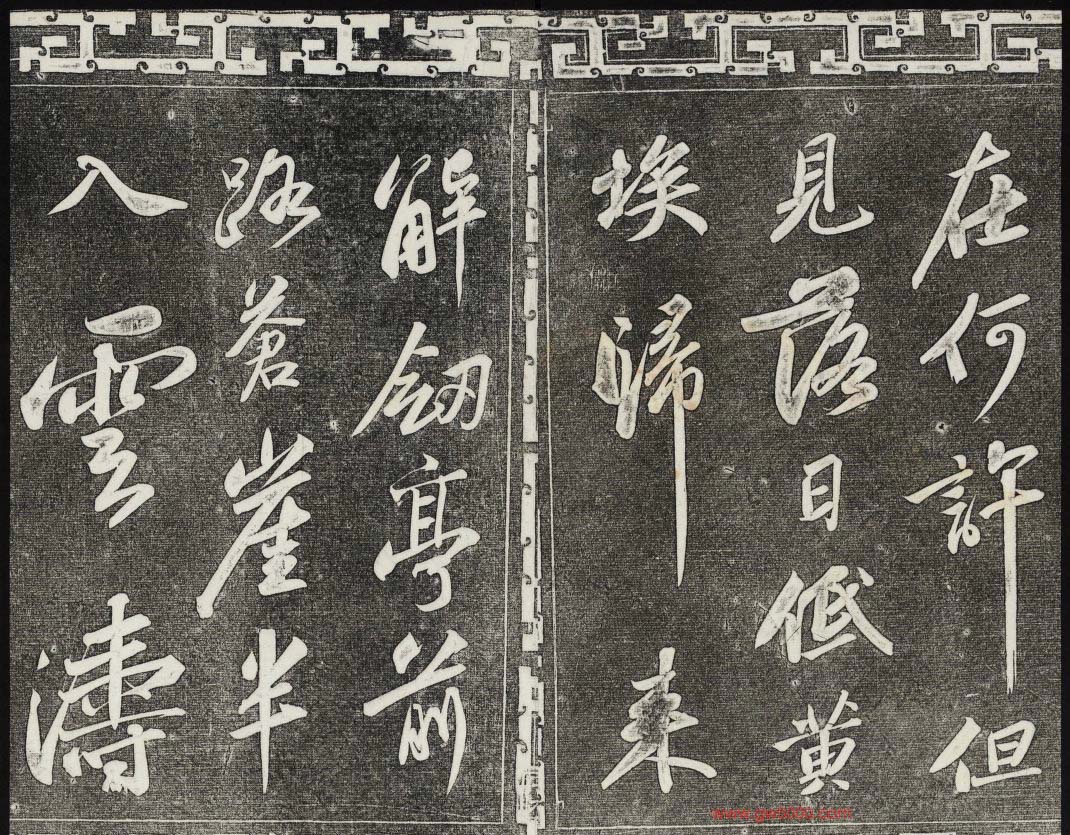 在何許但
見落日低黄
埃歸来
解劒亭前
路蒼崖半
入雲濤